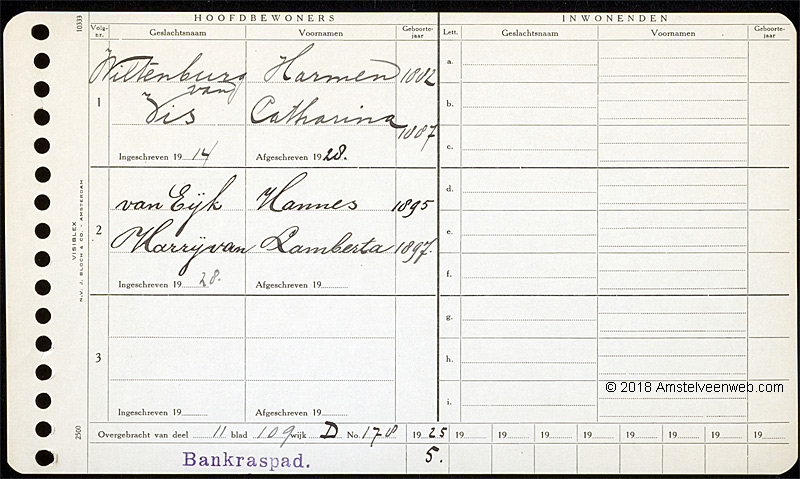 HOOFDBEWONERS INWONENDEN
Volg-nr. Geslachtsnaam Voornamen Geboorte-jaar Lett. Geslachtsnaam Voornamen Geboorte-jaar
10333
Wittenburg van Harmen 1882 a.
1 Vis Catharina 1887 b.
c.
Ingeschreven 19 14 Afgeschreven 1928.
van Eijk Hannes 1895 d.
2 e.
van Lamberta 1897. f.
Ingeschreven 19 28. Afgeschreven 19
VISIBLEX
N.V. J. BLOCH & CO. - AMSTERDAM
g.
3 h.
i.
Ingeschreven 19 Afgeschreven 19
© 2018 Amstelveenweb.com
2500
Overgebracht van deel 11 blad 109 wijk D No. 178 19 25 19 19 19 19 19 19 19 19
Bankraspad. 5.